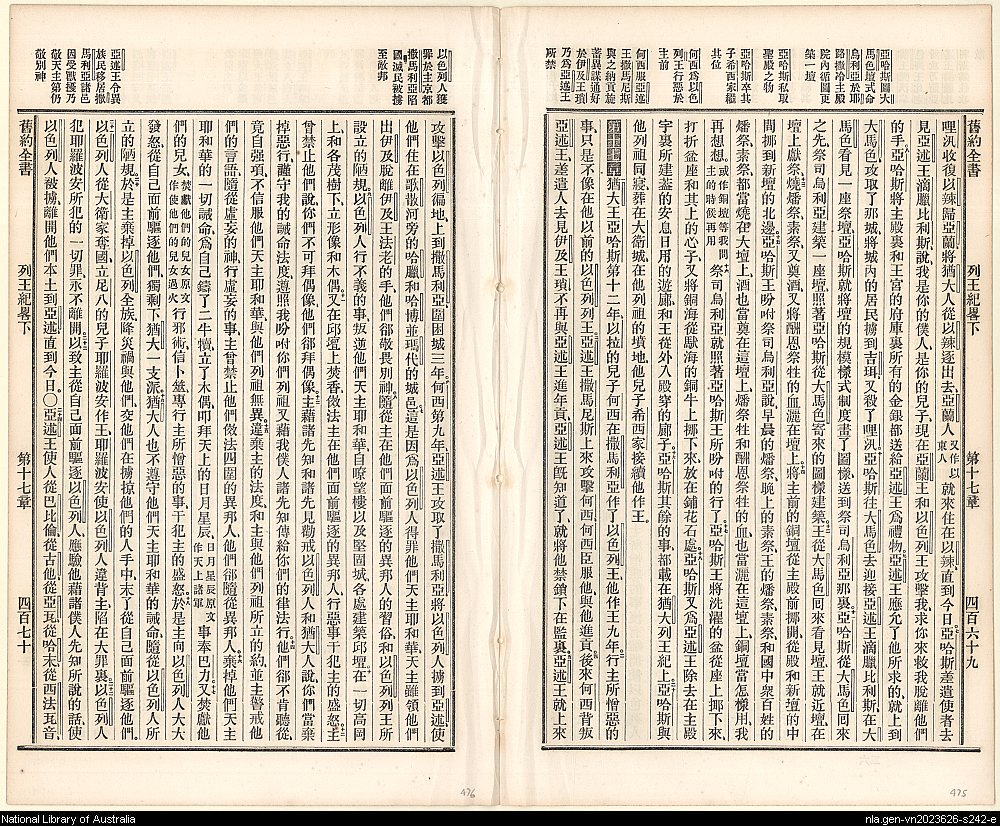 舊約全書 列王紀畧下 第十七章 四百六十九
亞哈斯圖大
馬色壇式命
烏利亞於耶
路撒冷主殿
院內循圖更
築一壇
亞哈斯私取
聖殿之物
亞哈斯卒其
子希西家繼
其位
何西爲以色
列王行惡於
主前
何西服亞述
王撒馬尼斯
與之納貢旋
蓄異謀通好
於伊及王瑣
乃爲亞述王
所禁
哩汛收復以辣歸亞蘭將猶大人從以辣逐出去亞蘭人又作以東人就來住在以辣直到今日亞哈斯差遣使者去
見亞述王滴臘比利斯說我是你的僕人是你的兒子現在亞蘭王和以色列王攻擊我求你來救我脫離他們
的手亞哈斯將主殿裏和王宮的府庫裏所有的金銀都送給亞述王爲禮物亞述王應允了他所求的就上到
大馬色攻取了那城將城內的居民擄到吉珥又殺了哩汛亞哈斯往大馬色去迎接亞述王滴臘比利斯在大
馬色看見一座祭壇亞哈斯就將壇的規模樣式制度畫了圖樣送到祭司烏利亞那裏亞哈斯從大馬色回來
之先祭司烏利亞建築一座壇照著亞哈斯從大馬色寄來的圖樣建築王從大馬色回來看見壇王就近壇在
壇上獻祭燒燔祭素祭又奠酒又將酬恩祭牲的血灑在壇上將主前的銅壇從主殿前挪開從殿和新壇的中
間挪到新壇的北邊亞哈斯王吩咐祭司烏利亞說早晨的燔祭晚上的素祭王的燔祭素祭和國中衆百姓的
燔祭素祭都當燒在大壇上酒也當奠在這壇上燔祭牲和酬恩祭牲的血也當灑在這壇上銅壇當怎樣用我
再想想或作銅壇等我問主的時候再用祭司烏利亞就照著亞哈斯王所吩咐的行了亞哈斯王將洗濯的盆從座上挪下來
打折盆座和其上的心子又將銅海從馱海的銅牛上挪下來放在鋪花石處亞哈斯又爲亞述王除去在主殿
宇裏所建蓋的安息日用的遊廊和王從外入殿穿的廊子亞哈斯其餘的事都載在猶大列王紀上亞哈斯與
他列祖同寢葬在大衛城在他列祖的墳地他兒子希西家接續他作王
第十七章猶大王亞哈斯第十二年以拉的兒子何西在撒馬利亞作了以色列王他作王九年行主所憎惡的
事只是不像在他以前的以色列王亞述王撒馬尼斯上來攻擊何西何西臣服他與他進貢後來何西背叛
亞述王差遣人去見伊及王瑣不再與亞述王進年貢亞述王既知道了就將他禁鎖下在監裏亞述王就上來
以色列人獲
罪於主京都
撒馬利亞陷
國滅民被擄
至敵邦
亞述王令異
族民移居撒
馬利亞諸邑
因受獸擾乃
敬天主第仍
敬別神
攻擊以色列徧地上到撒馬利亞圍困城三年何西第九年亞述王攻取了撒馬利亞將以色列人擄到亞述使
他們住在歌散河旁的哈臘和哈博並瑪代的城邑這是因爲以色列人得罪他們天主耶和華天主雖領他們
出伊及脫離伊及王法老的手他們卻敬畏別神隨從主在他們面前驅逐的異邦人的習俗和以色列王所
設立的陋規以色列人暗行不義的事叛逆他們天主耶和華自瞭望樓以及堅固城各處建築邱壇在一切高岡
上和各茂樹下立形像和木偶又在邱壇上焚香傚法主在他們面前驅逐的異邦人行惡事干犯主的盛怒主
曾禁止他們說你們不可拜偶像他們卻拜偶像主藉諸先知和諸先見勸戒以色列人和猶大人說你們當棄
掉惡行謹守我的誡命法度遵照我吩咐你們列祖又藉我僕人諸先知傳給你們的律法行他們卻不肯聽從
竟自强項不信服他們天主耶和華與他們列祖無異違棄主的法度和主與他們列祖所立的約並主警戒他
們的言語隨從虛妄的神行虛妄的事主曾禁止他們傚法四圍的異邦人他們卻隨從異邦人棄掉他們天主
耶和華的一切誡命爲自己鑄了二牛犢立了木偶叩拜天上的日月星辰日月星辰原文作天上諸軍事奉巴力又焚獻他
們的兒女焚獻他們的兒女原文作使他們的兒女過火行邪術信卜筮專行主所憎惡的事干犯主的盛怒於是主向以色列人大大
發怒從自己面前驅逐他們獨剩下猶大一支派猶大人也不遵守他們天主耶和華的誡命隨從以色列人所
立的陋規於是主棄掉以色列全族降災禍與他們交他們在擄掠他們的人手中末了從自己面前驅逐他們
以色列人從大衛家奪國立尼八的兒子耶羅波安作王耶羅波安使以色列人違背主陷在大罪裏以色列人
犯耶羅波安所犯的一切罪永不離開以致主從自己面前驅逐以色列人應驗他藉諸僕人先知所說的話使
以色列人被擄離開他們本土到亞述直到今日〇亞述王使人從巴比倫從古他從亞瓦從哈末從西法瓦音
舊約全書 列王紀畧下 第十七章 四百七十
476
475
National Library of Australia
nla.gen-vn2023626-s242-e